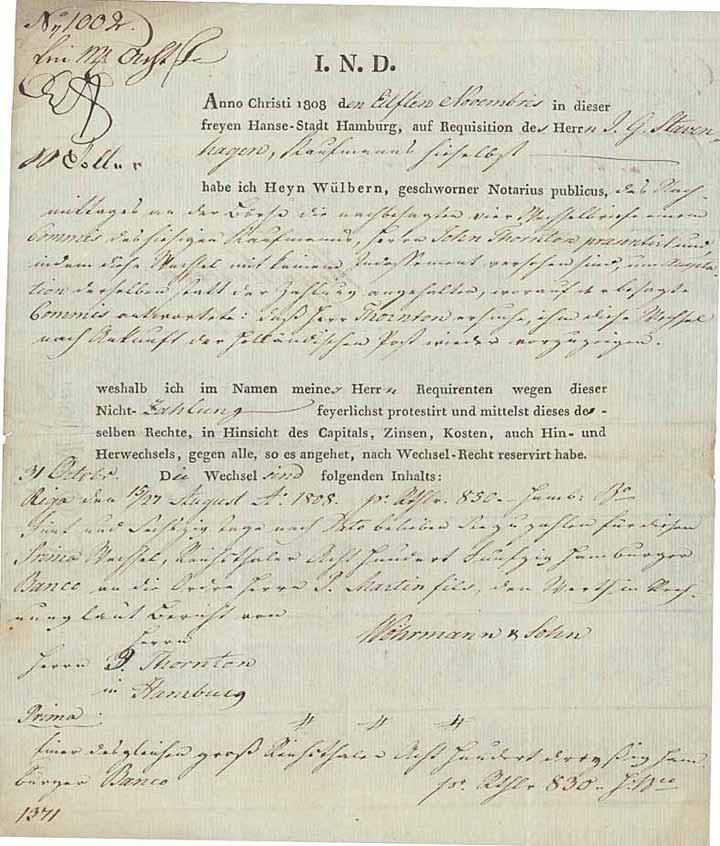 No. 1002.
I. N. D.
Anno Christi 1808 den Eilften Novembris in dieser
freyen Hanse-Stadt Hamburg, auf Requisition des Herrn J. G. Staven-
hagen, Kaufmanns hieselbst
habe ich Heyn Wülbern, geschworner Notarius publicus, des Nach-
mittages an der Börse die nachbesagten vier Wechselbriefe einem
Commis des hiesigen Kaufmanns, Herrn John Thornton praesentirt und,
indem diese Wechsel mit keinem Indossement versehen sind, um Accepta-
tion derselben statt der Zahlung angehalten, worauf der besagte
Commis antwortete: daß Herr Thornton ersuche, ihm diese Wechsel
nach Ankunft der Holländischen Post wieder vorzuzeigen.
weshalb ich im Namen meines Herrn Requirenten wegen dieser
Nicht-Zahlung feyerlichst protestirt und mittelst dieses des-
selben Rechte, in Hinsicht des Capitals, Zinsen, Kosten, auch Hin- und
Herwechsels, gegen alle, so es angehet, nach Wechsel-Recht reservirt habe.
31 Octobr. Die Wechsel sind folgenden Inhalts:
Riga den 15/27 August Ao 1808. pr. Rthlr. 850.- Hamb: Bco
Fünf und Sechszig Tage nach Dato belieben Sie zu zahlen für diesen
Prima Wechsel, Reichsthaler Acht hundert Funfzig Hamburger
Banco an die Ordre Herrn P. Martin fils, den Werth in Rech-
nung laut Bericht von
Wöhrmann & Sohn
Herrn
Herrn J. Thornton
in Hamburg
Prima.
Einer desgleichen groß Reichsthaler Acht hundert dreyßig Ham-
burger Banco pr. Rthlr 830.- H: Bco
1371